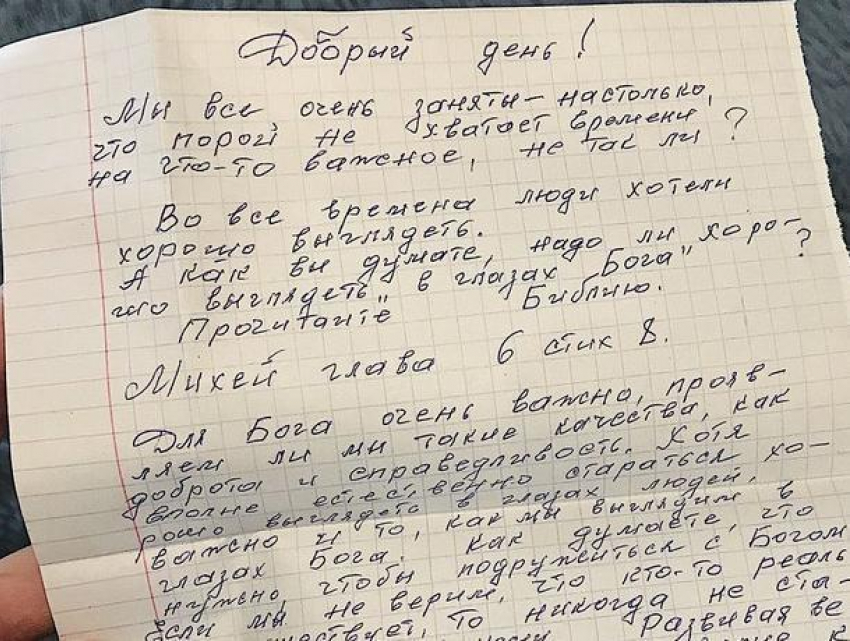 Добрый день!
Мы все очень заняты - настолько,
что порой не хватает времени
на что-то важное, не так ли?
Во все времена люди хотели
хорошо выглядеть.
А как вы думате, надо ли „хоро-
шо выглядеть" в глазах Бога?
Прочитайте Библию.
Михей глава 6 стих 8.
Для Бога очень важно, прояв-
ляем ли мы такие качества, как
доброта и справедливость. Хотя
вполне естественно стараться хо-
рошо выглядеть в глазах людей,
важно и то, как мы выглядим в
глазах Бога. Как думаете, что
нужно, чтобы подружиться с Богом
Если мы не верим, что кто-то реаль
ществует, то никогда не ста-
Развивая ве